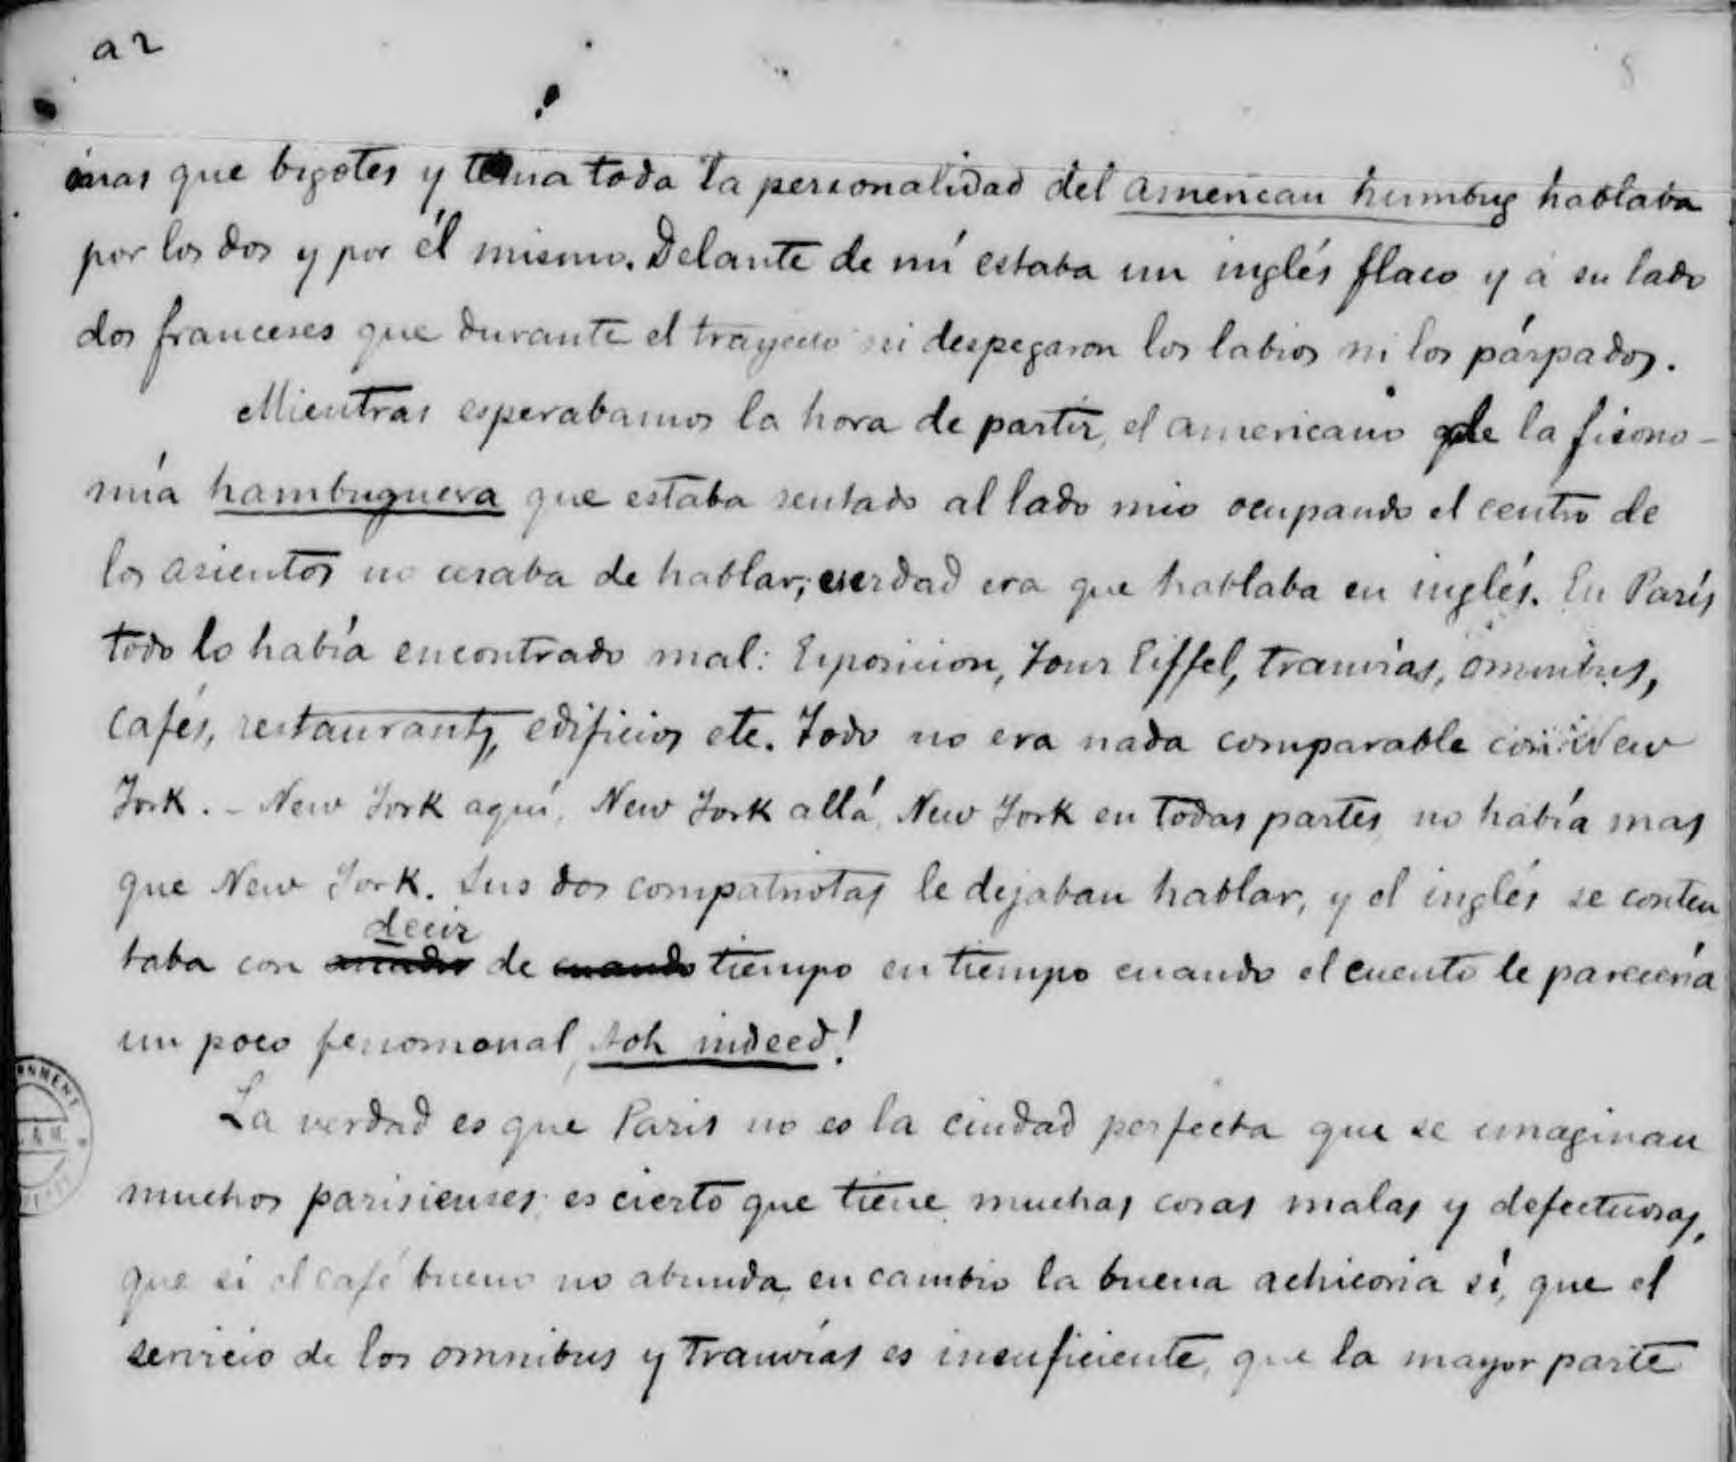 a2
mas que bigotes y tenia toda la personalidad del american humbug hablaba
por los dos y por él mismo. Delante de mí estaba un inglés flaco y á su lado
dos franceses que durante el trayecto ni despegaron los labios ni los párpados.
Mientras esperabamos la hora de partir, el americano de la fisono-
mía hambuguera que estaba sentado al lado mio ocupando el centro de
los asientos no cesaba de hablar; verdad era que hablaba en inglés. En París
todo lo había encontrado mal: Exposicion, Tour Eiffel, tranvías, omnibus,
cafés, restaurants, edificios etc. Todo no era nada comparable con New
York. - New York aquí, New York allá, New York en todas partes, no había mas
que New York. Sus dos compatriotas le dejaban hablar, y el inglés se conten
taba con decir de cuando tiempo en tiempo cuando el cuento le parecería
un poco fenomonal, Aoh indeed!
La verdad es que Paris no es la ciudad perfecta que se imaginan
muchos parisienses; es cierto que tiene muchas cosas malas y defectuosas,
que si el café bueno no abunda, en cambio la buena achicoria sí, que el
servicio de los omnibus y tranvías es insuficiente, que la mayor parte